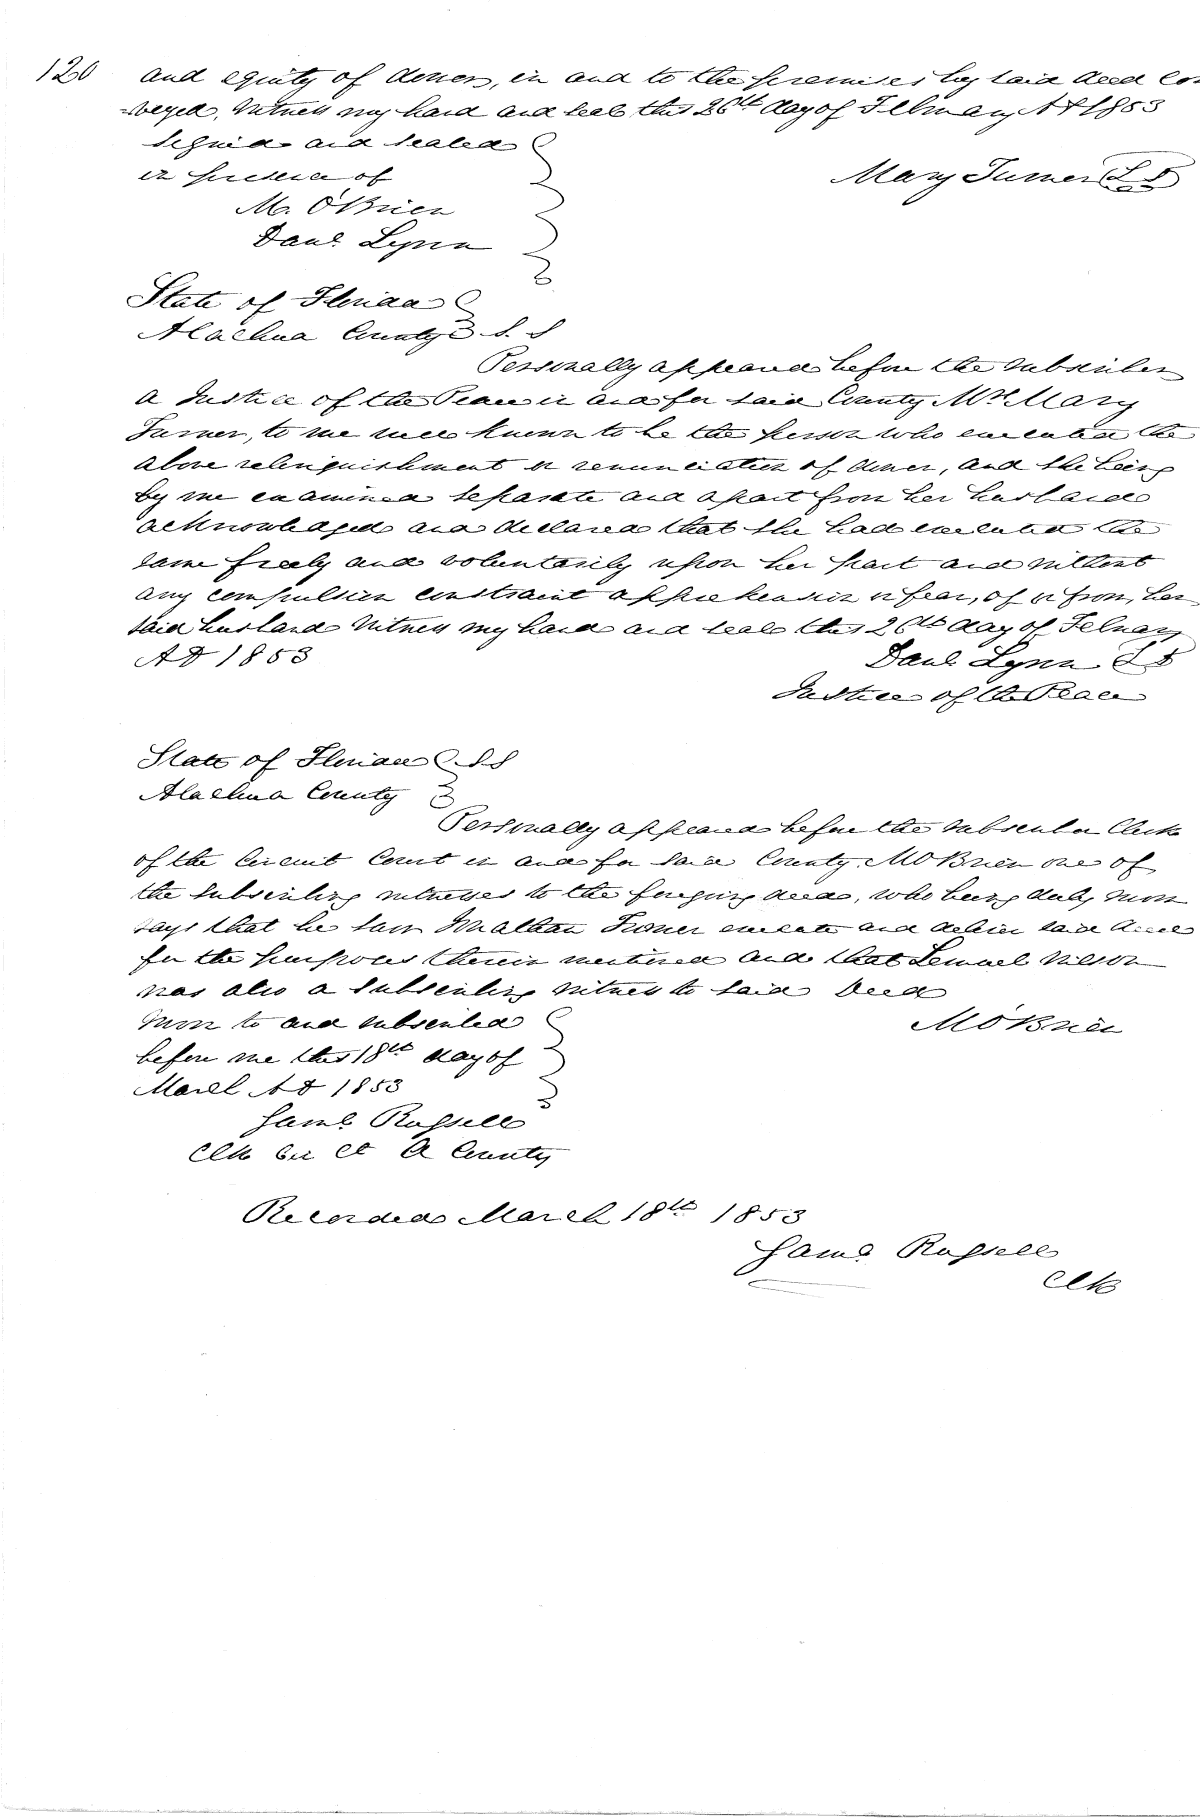 120 and equity of dower, in and to the premises by said deed con
-veyed, Witness my hand and seal this 26th day of February AD 1853
Signed and sealed
in presence of
Mary Turner LS
M. O'Brien
Danl Lynn
State of Florida
Alachua County S. S
Personally appeared before the subscriber
a Justice of the Peace in and for said County Mrs Mary
Turner, to me well known to be the person who executed the
above relinquishment or renunciation of dower, and she being
by me examined separate and apart from her husband
acknowledged and declared that she had executed the
same freely and voluntarily upon her part and without
any compulsion constraint apprehension or fear, of or from, her
said husband Witness my hand and seal this 26th day of February
AD 1853
Danl Lynn LS
Justice of the Peace
State of Florida SS
Alachua County
Personally appeared before the subscriber Clerk
of the Circuit Court in and for said County M O Brien one of
the subscribing witnesses to the foregoing deed, who being duly sworn
says that he saw Turner execute and deliver said deed
for the purposes therein mentioned and that Lemuel Wilson
was also a subscribing witness to said Deed
Sworn to and subscribed
M O'Brien
before me this 18th day of
March AD 1853
Saml Russell
Clk Cir Ct A County
Recorded March 18th 1853
Saml Russell
Clk